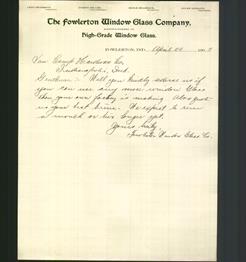 The Fowlerton Window Glass Company,
High-Grade Window Glass.
Fowlerton, Ind., April 20 190
Van Camp Hardware Co
Indianapolis, Ind.
Gentlemen :- Will you kindly advise us if
you can use any more window Glass
than your own factory is making. Also quote
us your best price. We expect to run
a month or six longer yet.
Yours truly
Fowlerton Window Glass Co.